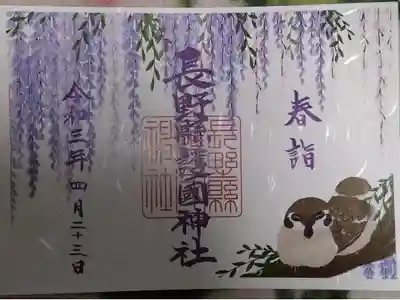 春詣
長野縣護國神社
長野縣
神社
令和三年四月二十三日